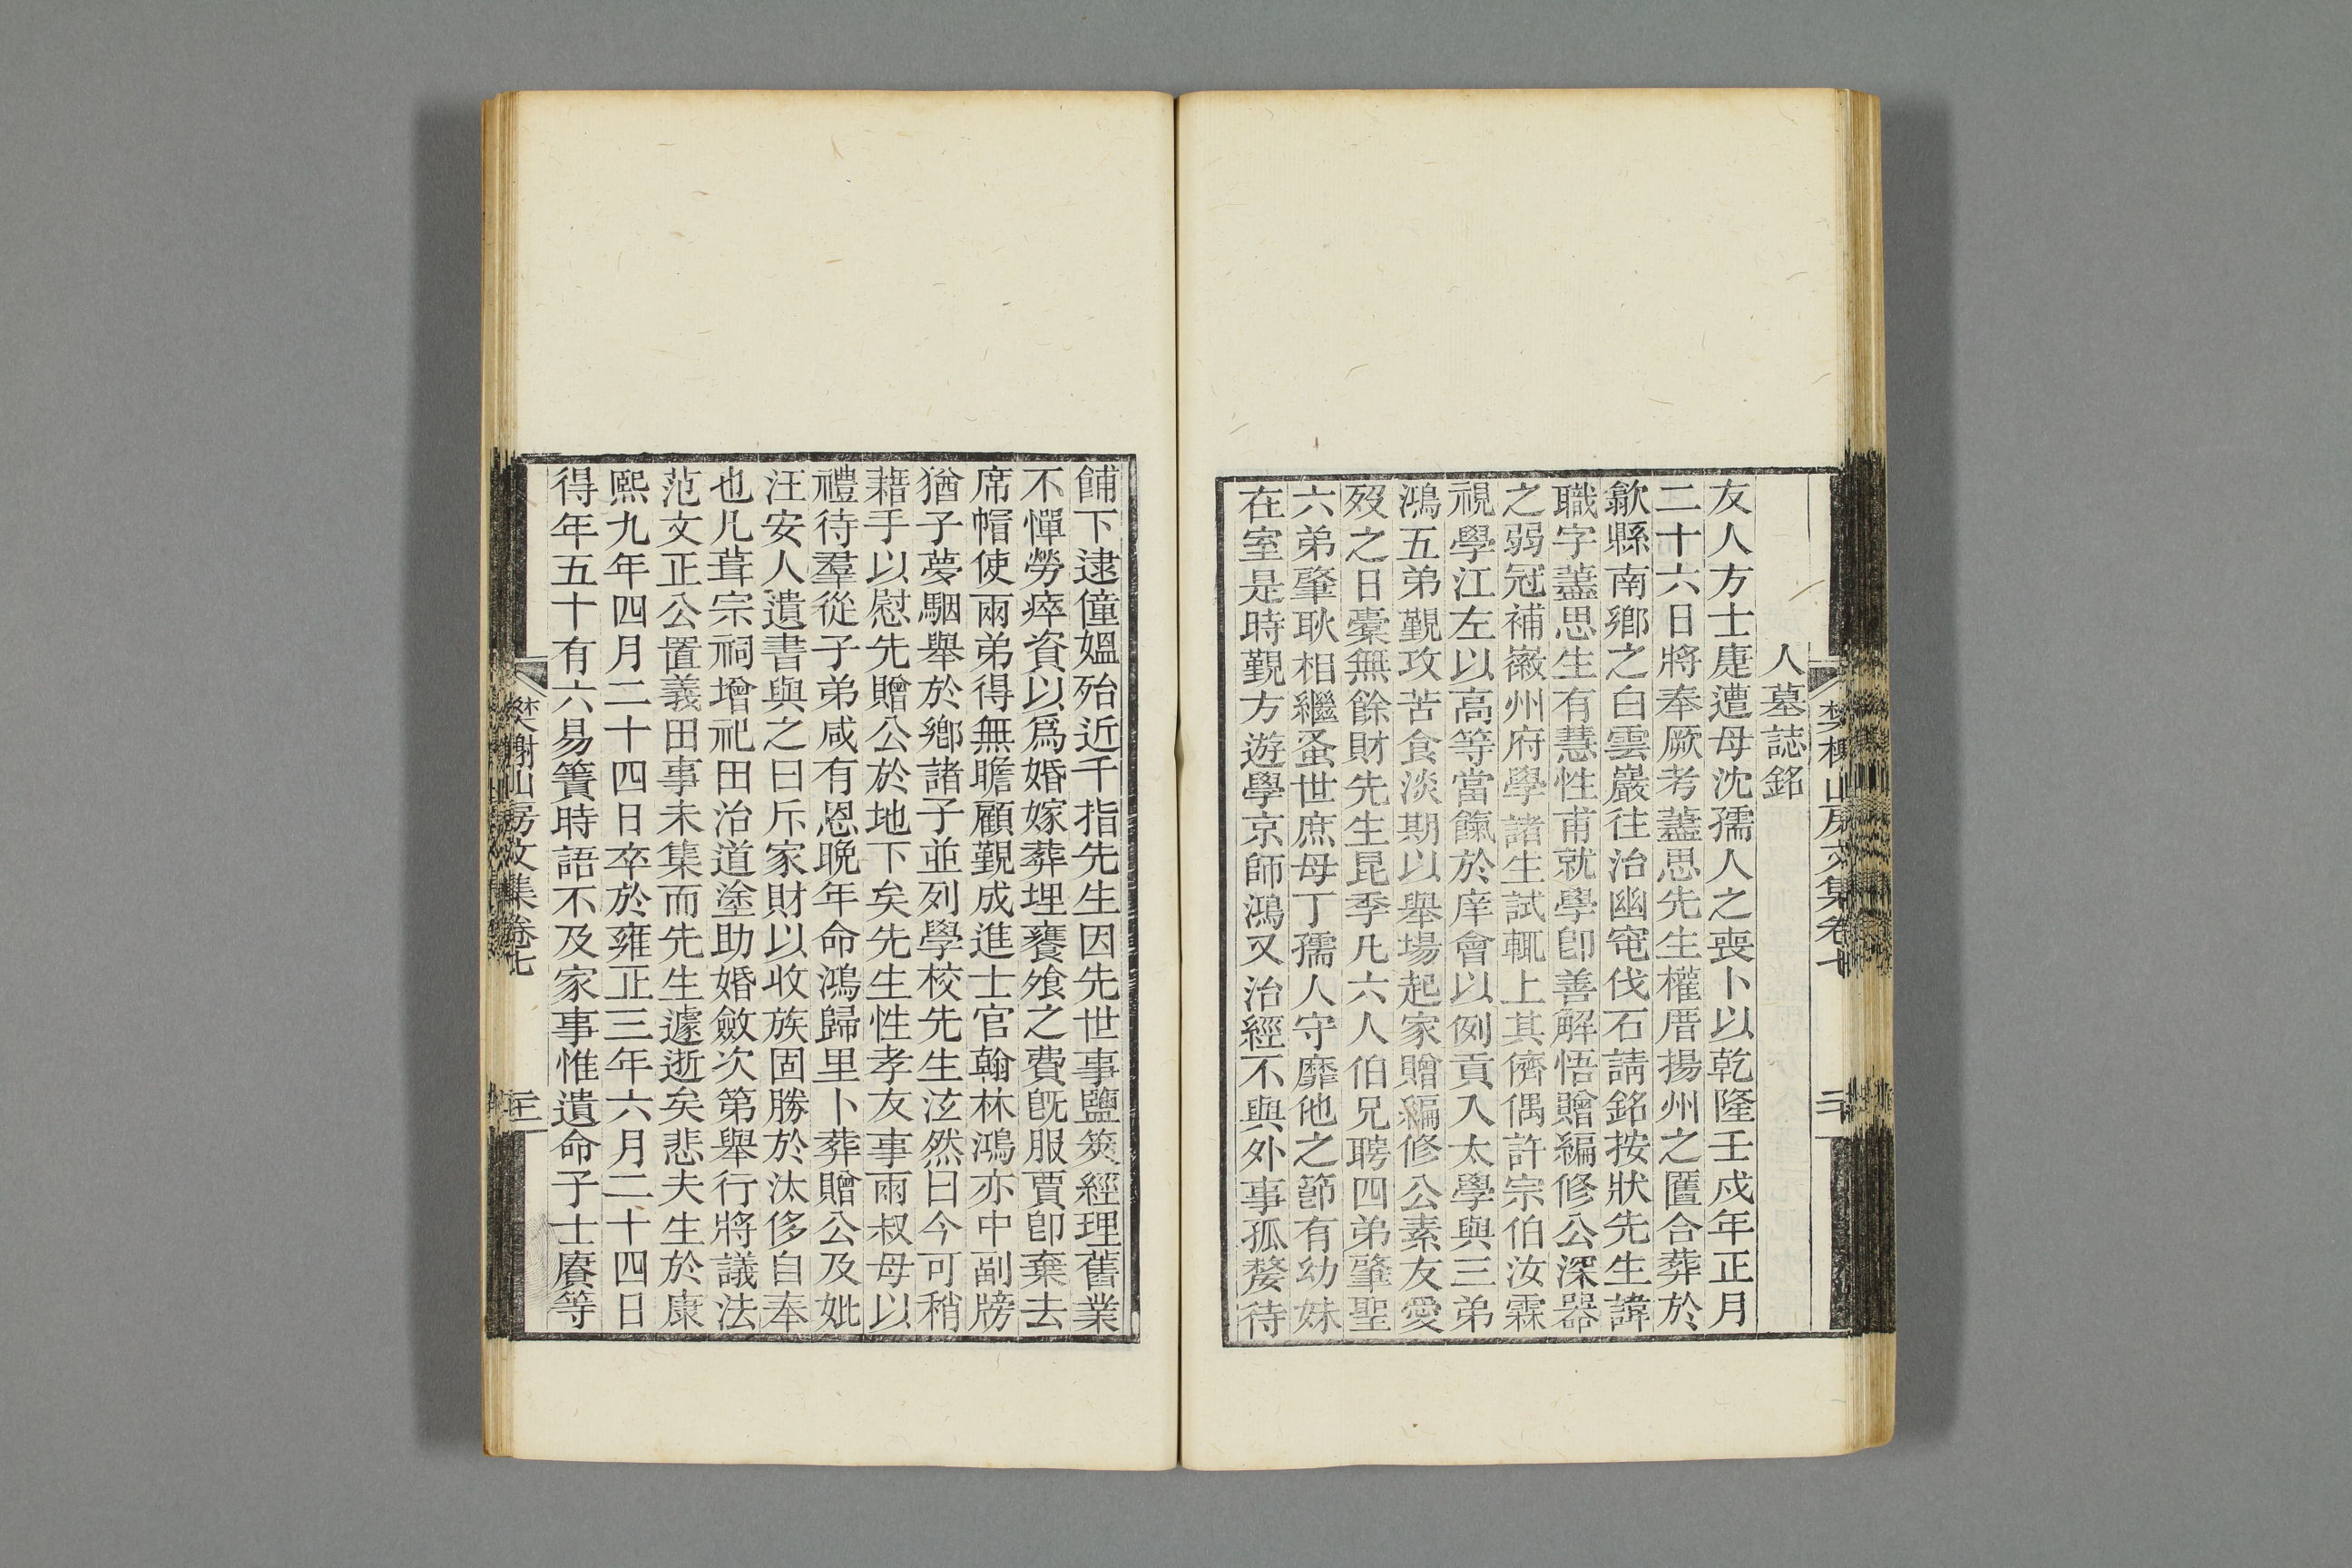 人墓誌銘
友人方士㢙遭母沈孺人之喪卜以乾隆壬戌年正月
二十六日將奉厥考藎思先生權厝揚州之匶合葬於
歙縣南鄉之白雲巖往治幽窀伐石請銘按狀先生諱
職字藎思生有慧性甫就學卽善解悟贈編修公深器
之弱冠補徽州府學諸生試輒上其儕偶許宗伯汝霖
視學江左以高等當餼於庠會以例貢入太學與三弟
鴻五弟覲攻苦食淡期以舉場起家贈編修公素友愛
歿之日橐無餘財先生昆季凡六人伯兄聘四弟肇聖
六弟肇耿相繼蚤世庶母丁孺人守靡他之節有幼妹
在室是時覲方遊學京師鴻又治經不與外事孤嫠待
餔下逮僮媼殆近千指先生因先世事鹽筴經理舊業
不憚勞瘁資以爲婚嫁葬埋饔飧之費旣服賈卽棄去
席帽使兩弟得無瞻顧覲成進士官翰林鴻亦中副牓
猶子夢駰舉於鄉諸子並列學校先生泫然曰今可稍
藉手以慰先贈公於地下矣先生性孝友事兩叔母以
禮待羣從子弟咸有恩晚年命鴻歸里卜葬贈公及妣
汪安人遺書與之曰斥家財以收族固勝於汰侈自奉
也凡葺宗祠增祀田治道塗助婚斂次第舉行將議法
范文正公置義田事未集而先生遽逝矣悲夫生於康
熙九年四月二十四日卒於雍正三年六月二十四日
得年五十有六易簀時語不及家事惟遺命子士㢙等
樊榭山房文集卷七